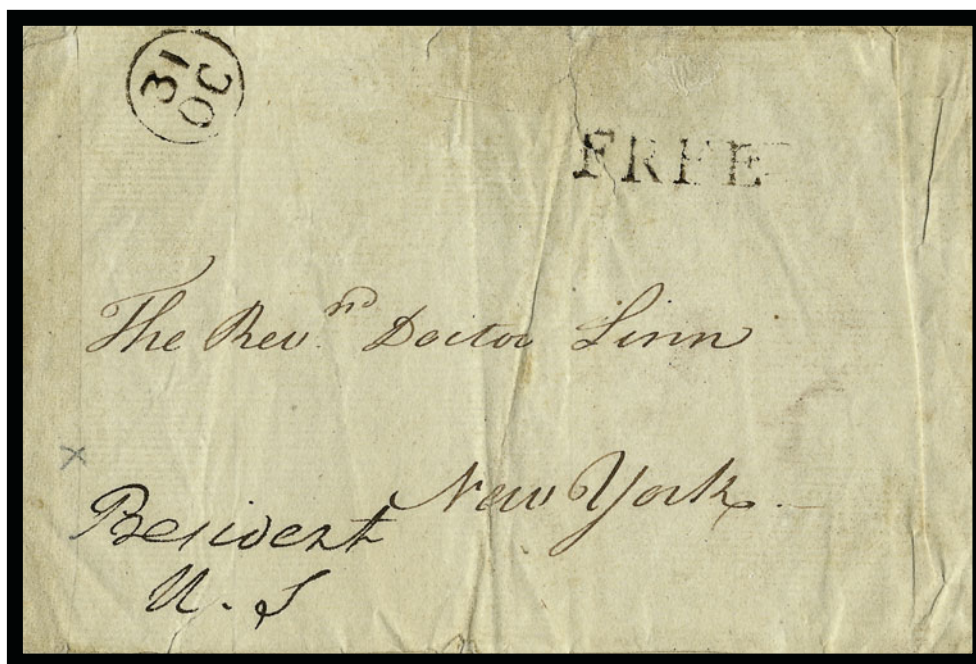 31
OC
FREE
The Rev.ʳᵈ Doctor Linn
New York.
President
U. S